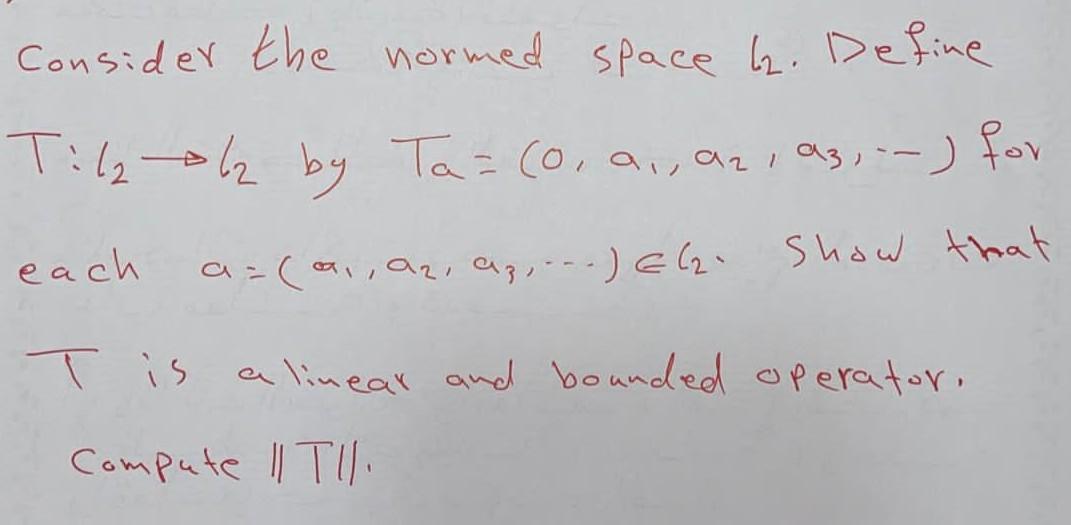 Consider the normed space l₂. Define
T: l₂ → l₂ by Ta = (0, a₁, a₂, a₃, ...) for
each a = (a₁, a₂, a₃, ...) ∈ l₂. Show that
T is a linear and bounded operator.
Compute ‖T‖.